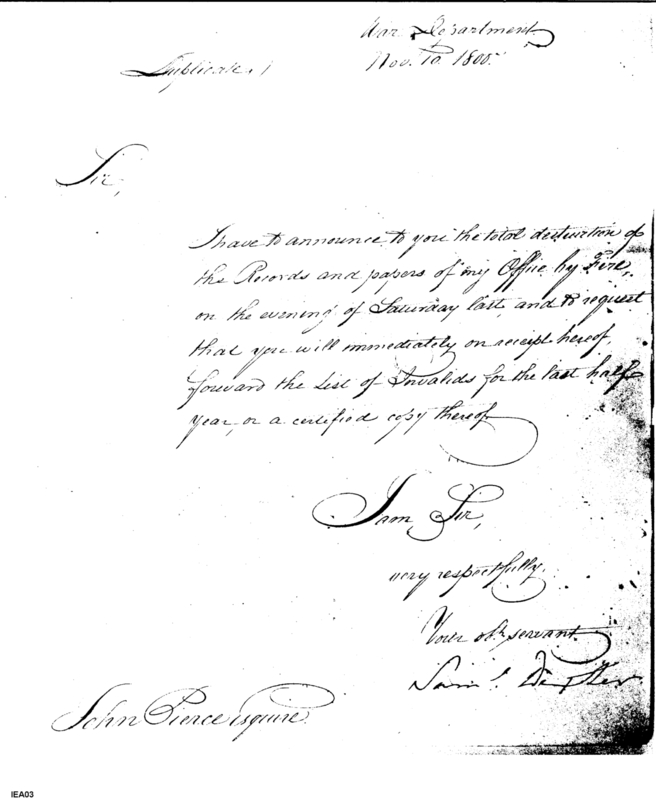 War Department
Nov. 10. 1800.
Duplicate
Sir,
I have to announce to you the total destruction of
the Records and papers of my Office by Fire,
on the evening of Saturday last, and to request
that you will immediately on receipt hereof,
forward the List of Invalids for the last half
year, or a certified copy thereof
I am, Sir,
very respectfully.
Your obt. servant.
Saml. Dexter
John Pierce Esquire.
IEA03